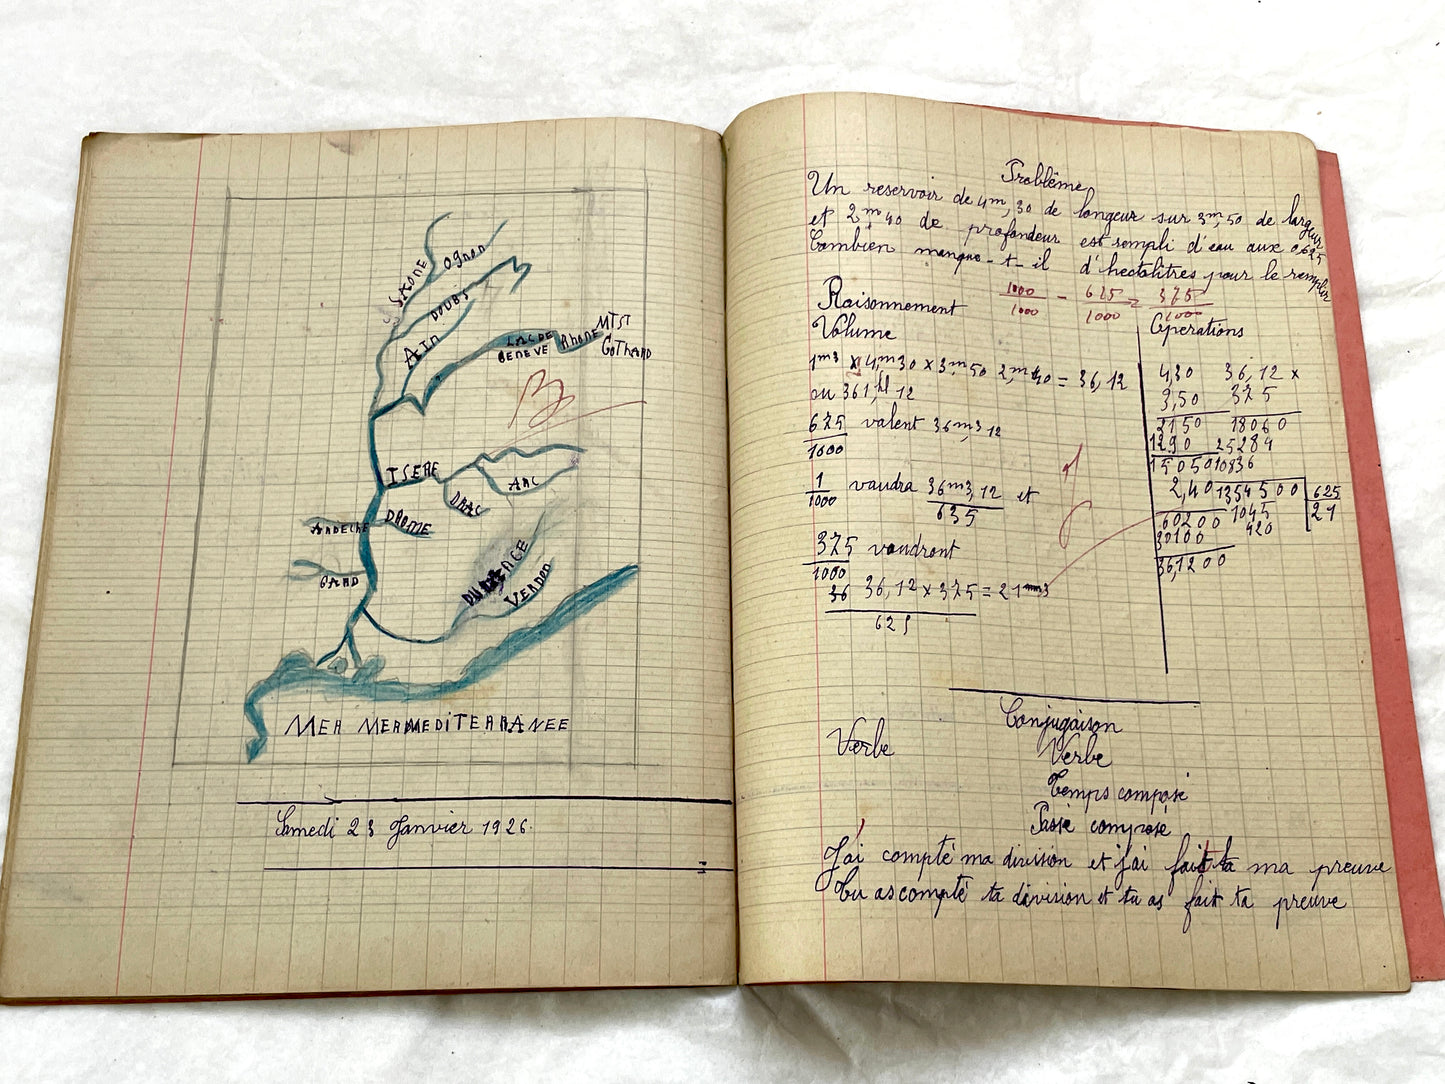 SAONE
Ognon
DOUBS
AIN
LAC DE
GENEVE
Rhone
MTST
GOTHARD
ISERE
ARC
DRAC
ARDECHE
DROME
GARD
DURANCE
VERDON
MER MEDITERRANEE
Samedi 23 Janvier 1926.
Problème
Un reservoir de 4m,30 de longeur sur 3m,50 de largeur
et 2m,40 de profondeur est rempli d'eau aux 0,625
Combien manque-t-il d'hectolitres pour le remplir
Raisonnement
1000/1000 - 625/1000 = 375/1000
Volume
Opérations
1m3 x 4,m30 x 3m,50 2,m40 = 36,12
ou 361,hl 12
625/1000 valent 36m3,12
1/1000 vaudra 36m3,12/635 et
375/1000 vaudront
36 36,12 x 375 = 21m3
625
4,30 36,12 x
3,50 375
2150 18060
1290 25284
15050 10836
2,40 1354500 625
60200 1045 21
30100 420
36,1200
Conjugaison
Verbe Verbe
Temps composé
Passé composé
J'ai compté ma division et j'ai fait ma preuve
Tu as compté ta division et tu as fait ta preuve